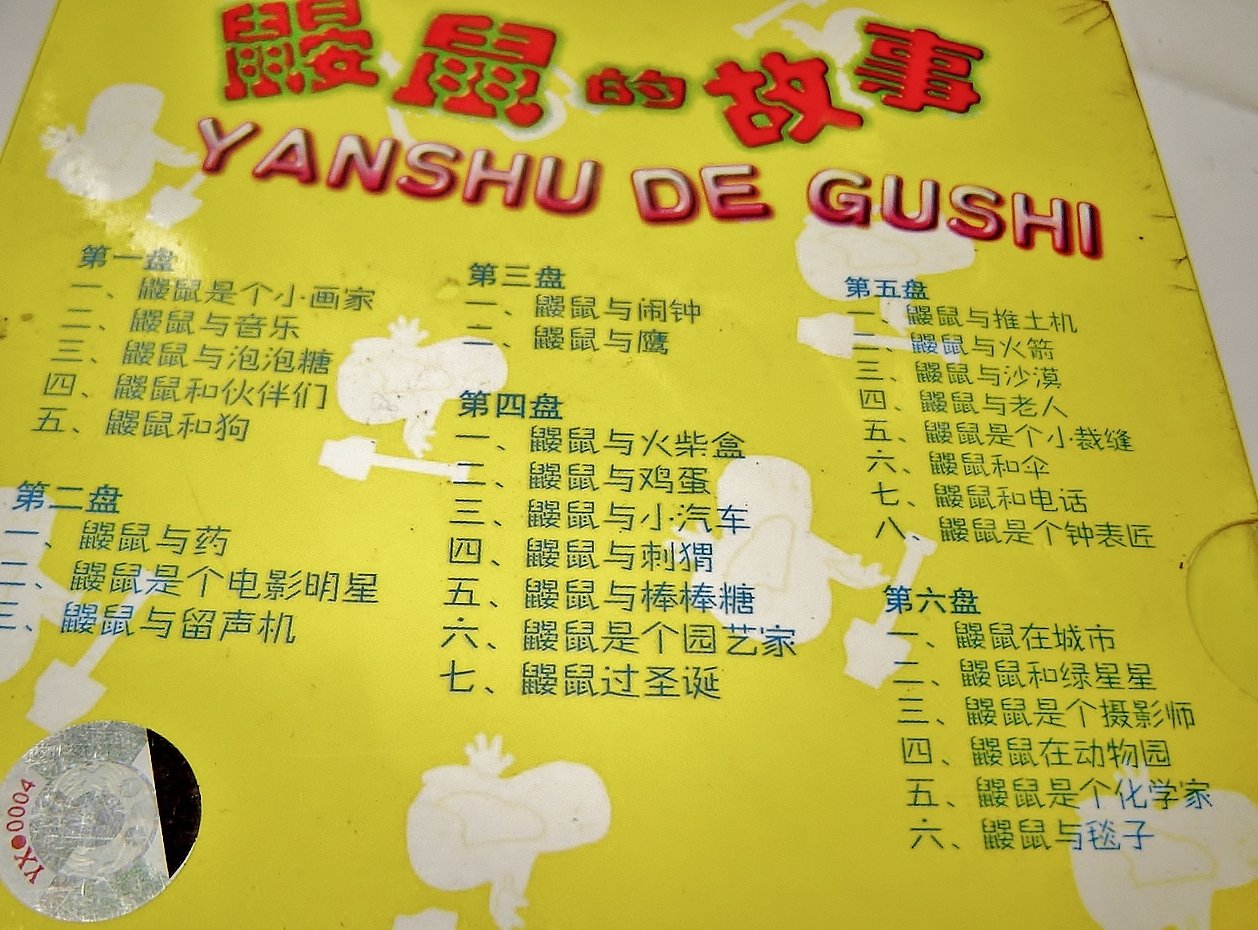 鼹鼠的故事
YANSHU DE GUSHI
第一盘
一、鼹鼠是个小画家
二、鼹鼠与音乐
三、鼹鼠与泡泡糖
四、鼹鼠和伙伴们
五、鼹鼠和狗
第二盘
一、鼹鼠与药
二、鼹鼠是个电影明星
三、鼹鼠与留声机
第三盘
一、鼹鼠与闹钟
二、鼹鼠与鹰
第四盘
一、鼹鼠与火柴盒
二、鼹鼠与鸡蛋
三、鼹鼠与小汽车
四、鼹鼠与刺猬
五、鼹鼠与棒棒糖
六、鼹鼠是个园艺家
七、鼹鼠过圣诞
第五盘
一、鼹鼠与推土机
二、鼹鼠与火箭
三、鼹鼠与沙漠
四、鼹鼠与老人
五、鼹鼠是个小裁缝
六、鼹鼠和伞
七、鼹鼠和电话
八、鼹鼠是个钟表匠
第六盘
一、鼹鼠在城市
二、鼹鼠和绿星星
三、鼹鼠是个摄影师
四、鼹鼠在动物园
五、鼹鼠是个化学家
六、鼹鼠与毯子
YX●0004